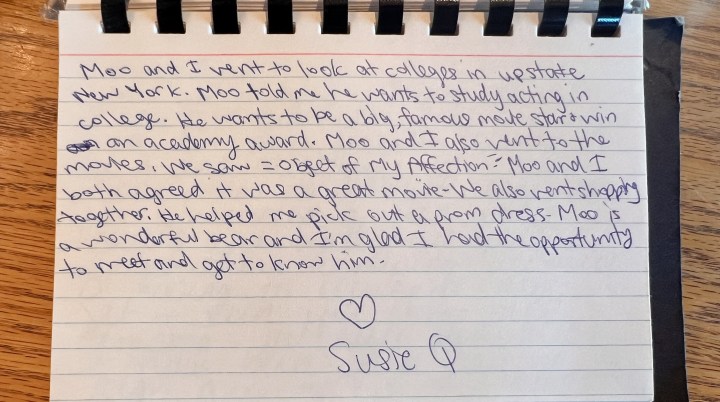 Moo and I went to look at colleges in upstate
New York. Moo told me he wants to study acting in
college. He wants to be a big, famous movie star + win
an academy award. Moo and I also went to the
movies. We saw "Object of My Affection" Moo and I
both agreed it was a great movie - We also went shopping
together. He helped me pick out a prom dress - Moo is
a wonderful bear and I'm glad I had the opportunity
to meet and get to know him.
♡
Susie Q